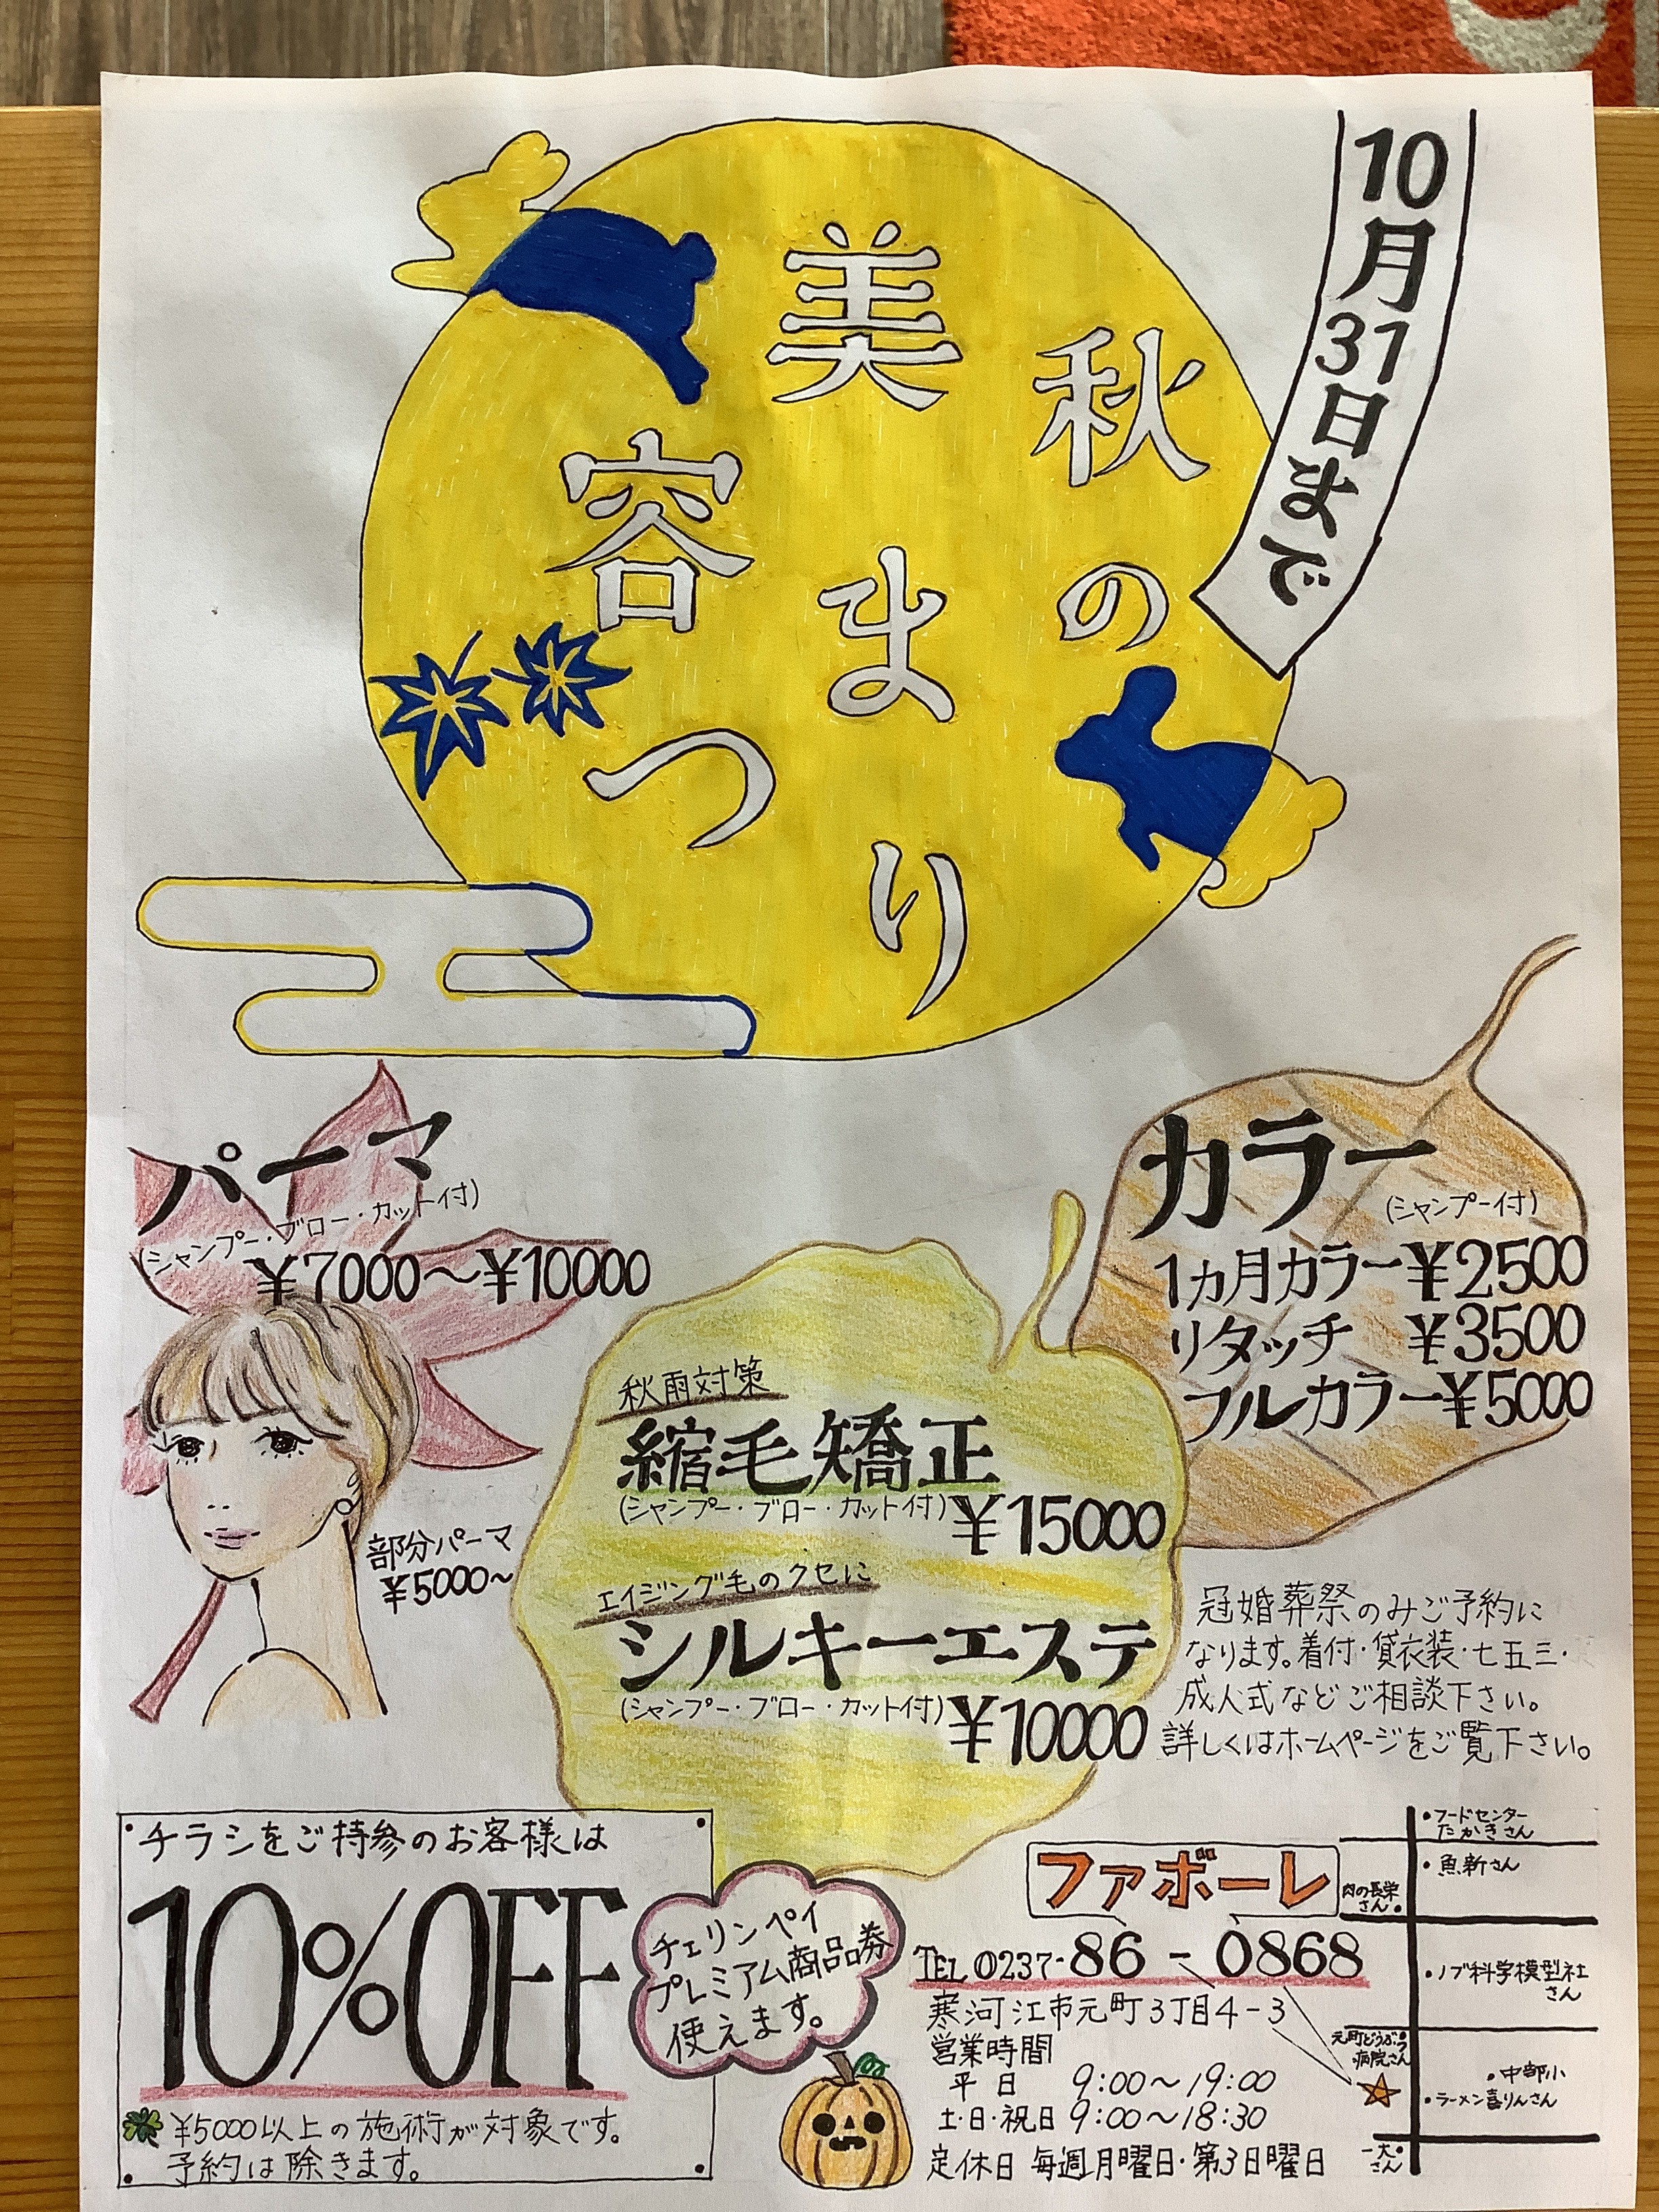 10月31日まで
秋の
美容まつり
パーマ
(シャンプー・ブロー・カット付)
¥7000～¥10000
部分パーマ
¥5000～
カラー
(シャンプー付)
1ヵ月カラー¥2500
リタッチ ¥3500
フルカラー¥5000
秋雨対策
縮毛矯正
(シャンプー・ブロー・カット付)¥15000
エイジング毛のクセに
シルキーエステ
(シャンプー・ブロー・カット付)¥10000
冠婚葬祭のみご予約に
なります。着付・貸衣装・七五三・
成人式などご相談下さい。
詳しくはホームページをご覧下さい。
チラシをご持参のお客様は
10%OFF
¥5000以上の施術が対象です。
予約は除きます。
チェリンペイ
プレミアム商品券
使えます。
ファボーレ
TEL 0237-86-0868
寒河江市元町3丁目4-3
営業時間
平日 9:00～19:00
土・日・祝日 9:00～18:30
定休日 毎週月曜日・第3日曜日
・フードセンター
たかきさん
・魚新さん
肉の長栄
さん・
・ノブ科学模型社
さん
元町どうぶつ
病院さん
・中部小
・ラーメン喜りんさん
一大・
さん